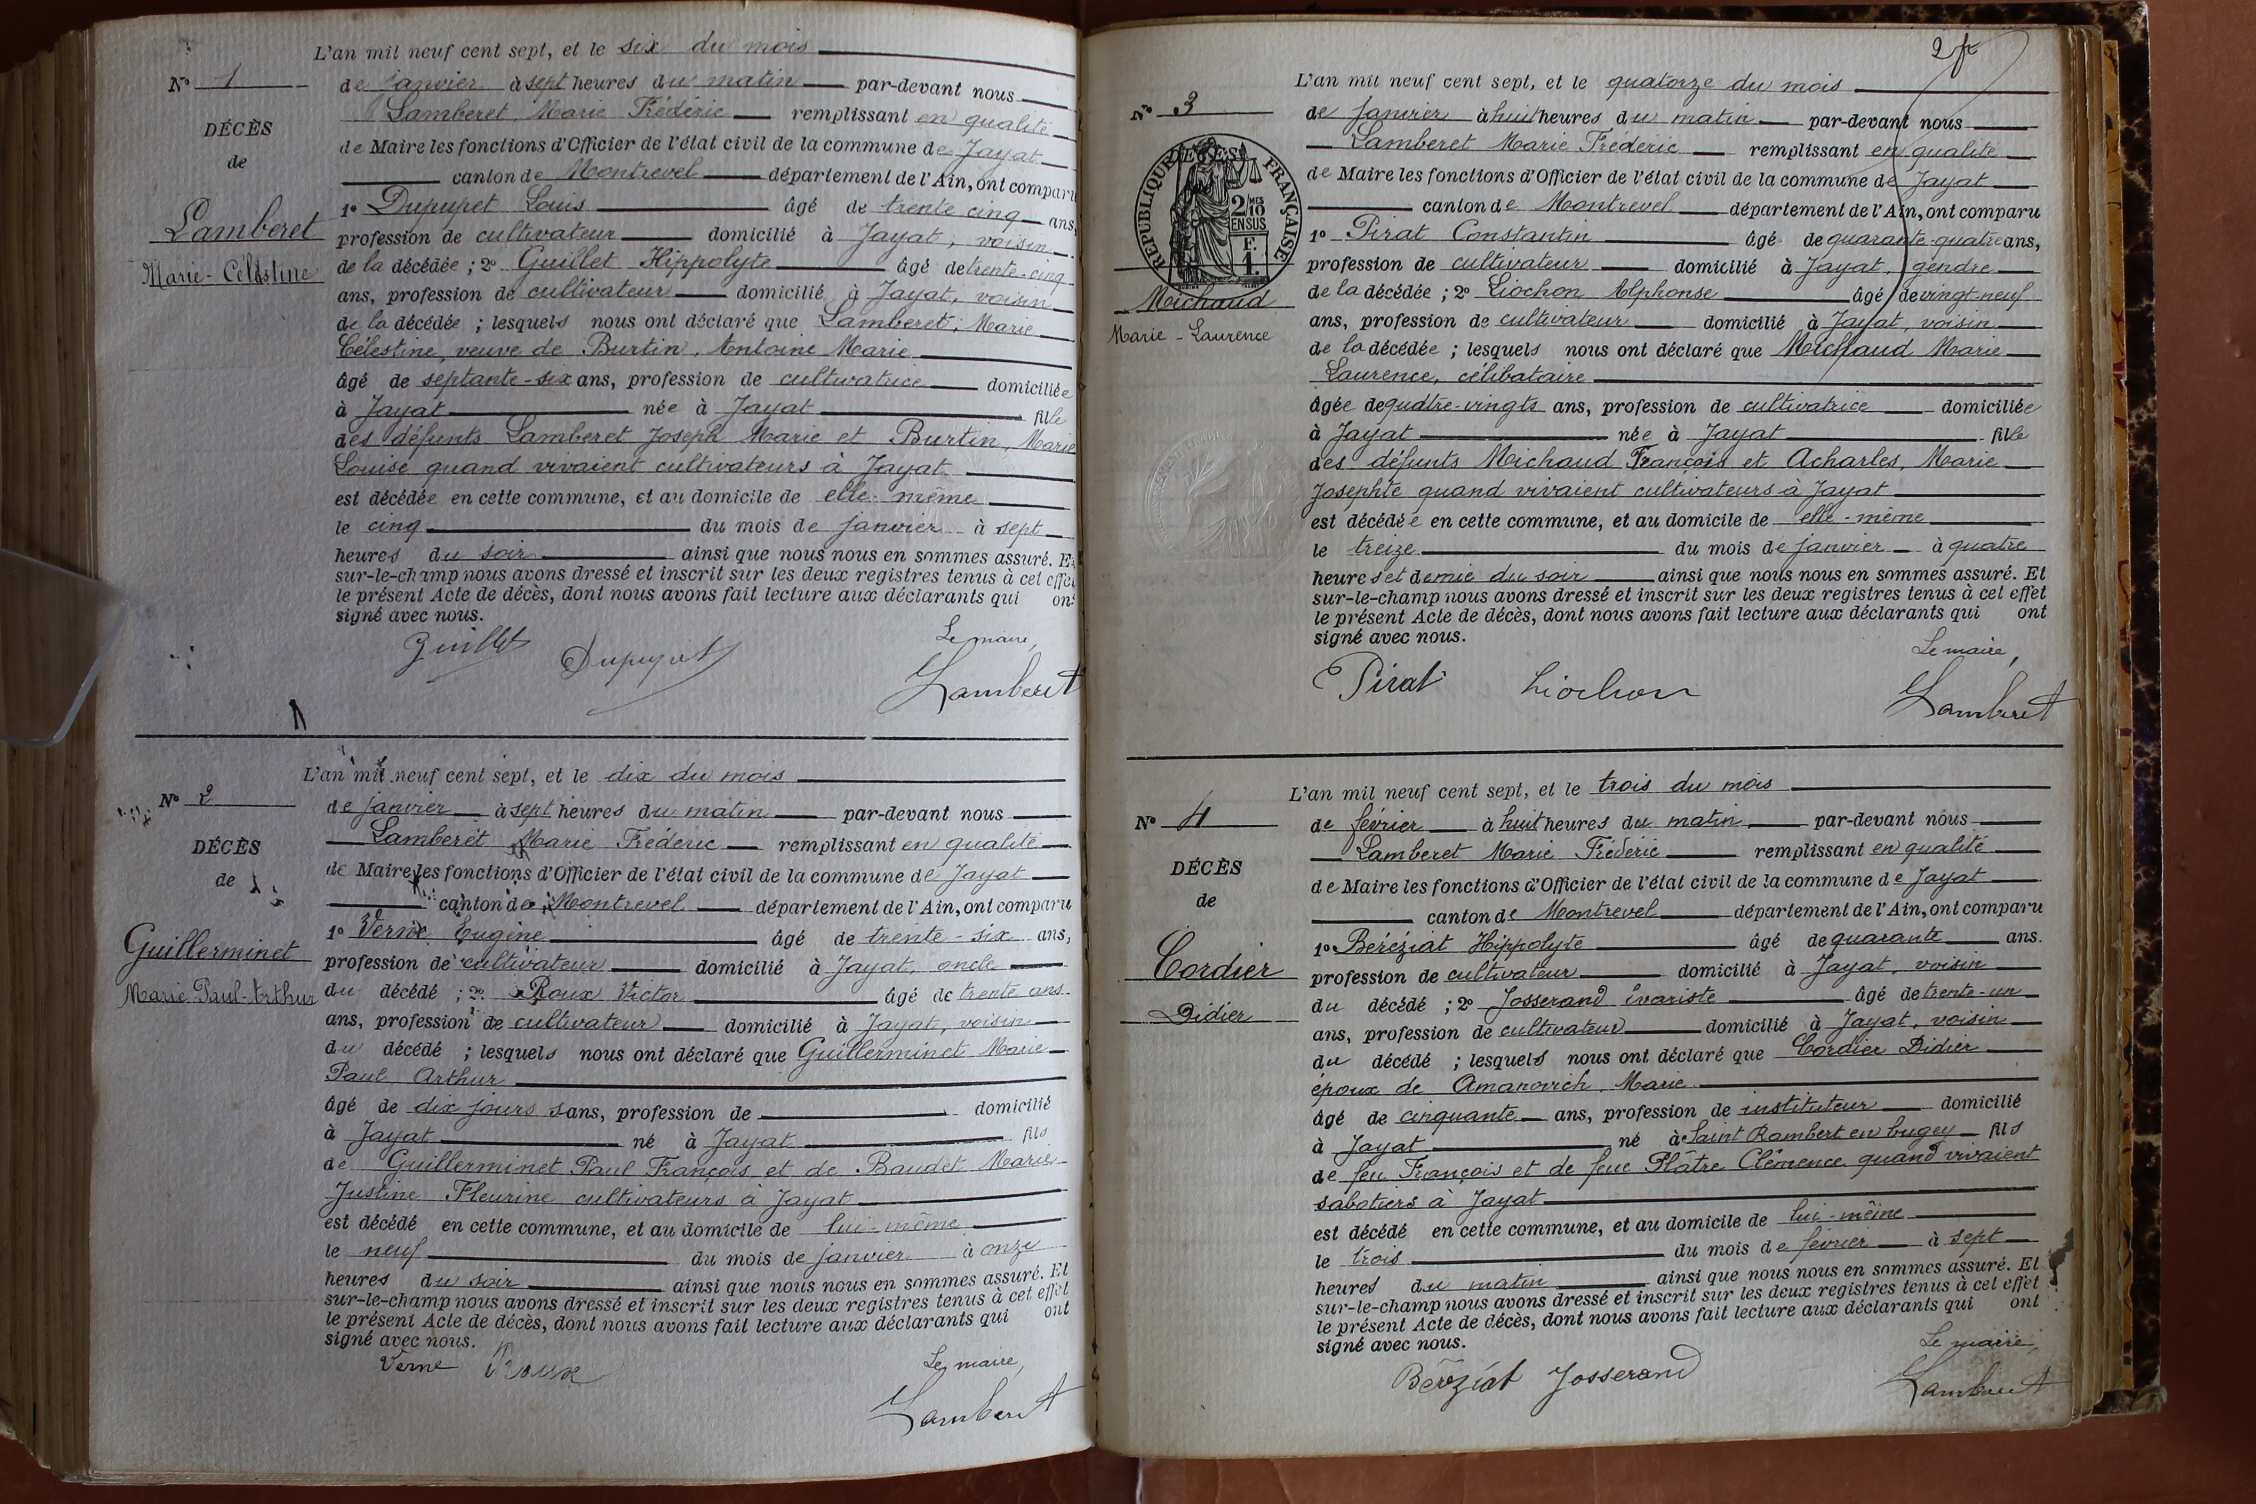 L'an mil neuf cent sept, et le six du mois
N° 1
de janvier à sept heures du matin par-devant nous
Lamberet Marie Frédéric remplissant en qualité
DÉCÈS
de Maire les fonctions d'Officier de l'état civil de la commune de Jayat
de
canton de Montrevel département de l'Ain, ont comparu
1° Dupupet Louis âgé de trente cinq ans,
Lamberet
profession de cultivateur domicilié à Jayat, voisin
Marie-Célestine
de la décédée ; 2° Guillet Hippolyte âgé de trente-cinq
ans, profession de cultivateur domicilié à Jayat, voisin
de la décédée ; lesquels nous ont déclaré que Lamberet, Marie
Célestine, veuve de Burtin, Antoine Marie
âgé de septante-six ans, profession de cultivatrice domiciliée
à Jayat née à Jayat fille
des défunts Lamberet Joseph Marie et Burtin, Marie
Louise quand vivaient cultivateurs à Jayat
est décédée en cette commune, et au domicile de elle-même
le cinq du mois de janvier à sept
heures du soir ainsi que nous nous en sommes assuré. Et
sur-le-champ nous avons dressé et inscrit sur les deux registres tenus à cet effet
le présent Acte de décès, dont nous avons fait lecture aux déclarants qui ont
signé avec nous.
Le maire,
Guillet Dupupet Lamberet
L'an mil neuf cent sept, et le dix du mois
N° 2
de janvier à sept heures du matin par-devant nous
Lamberet Marie Frédéric remplissant en qualité
DÉCÈS
de Maire les fonctions d'Officier de l'état civil de la commune de Jayat
de
canton de Montrevel département de l'Ain, ont comparu
1° Verne Eugène âgé de trente-six ans,
Guillerminet
profession de cultivateur domicilié à Jayat, oncle
Marie-Paul-Arthur
du décédé ; 2° Roux Victor âgé de trente ans
ans, profession de cultivateur domicilié à Jayat, voisin
du décédé ; lesquels nous ont déclaré que Guillerminet Marie
Paul Arthur
âgé de dix jours sans, profession de domicilié
à Jayat né à Jayat fils
de Guillerminet Paul François et de Baudet Marie
Justine Fleurine cultivateurs à Jayat
est décédé en cette commune, et au domicile de lui-même
le neuf du mois de janvier à onze
heures du soir ainsi que nous nous en sommes assuré. Et
sur-le-champ nous avons dressé et inscrit sur les deux registres tenus à cet effet
le présent Acte de décès, dont nous avons fait lecture aux déclarants qui ont
signé avec nous.
Le maire,
Verne Roux Lamberet
L'an mil neuf cent sept, et le quatorze du mois
N° 3
de janvier à huit heures du matin par-devant nous
Lamberet Marie Frédéric remplissant en qualité
de Maire les fonctions d'Officier de l'état civil de la commune de Jayat
RÉPUBLIQUE FRANÇAISE
2/10 MES
EN SUS
1 F.
canton de Montrevel département de l'Ain, ont comparu
1° Pirat Constantin âgé de quarante-quatre ans,
profession de cultivateur domicilié à Jayat, gendre
Michaud
Marie-Laurence
de la décédée ; 2° Liochon Alphonse âgé de vingt-neuf
ans, profession de cultivateur domicilié à Jayat, voisin
de la décédée ; lesquels nous ont déclaré que Michaud Marie
Laurence, célibataire
âgée de quatre-vingts ans, profession de cultivatrice domiciliée
à Jayat née à Jayat fille
des défunts Michaud François et Acharles, Marie
Josephte quand vivaient cultivateurs à Jayat
est décédée en cette commune, et au domicile de elle-même
le treize du mois de janvier à quatre
heures et demie du soir ainsi que nous nous en sommes assuré. Et
sur-le-champ nous avons dressé et inscrit sur les deux registres tenus à cet effet
le présent Acte de décès, dont nous avons fait lecture aux déclarants qui ont
signé avec nous.
Le maire,
Pirat Liochon Lamberet
L'an mil neuf cent sept, et le trois du mois
N° 4
de février à huit heures du matin par-devant nous
Lamberet Marie Frédéric remplissant en qualité
DÉCÈS
de Maire les fonctions d'Officier de l'état civil de la commune de Jayat
de
canton de Montrevel département de l'Ain, ont comparu
1° Beréziat Hippolyte âgé de quarante ans.
Cordier
profession de cultivateur domicilié à Jayat, voisin
Didier
du décédé ; 2° Josserand Évariste âgé de trente-un
ans, profession de cultivateur domicilié à Jayat, voisin
du décédé ; lesquels nous ont déclaré que Cordier Didier
époux de Amanovich, Marie
âgé de cinquante ans, profession de instituteur domicilié
à Jayat né à Saint Rambert en bugey fils
de feu François et de feue Plâtre Clémence quand vivaient
sabotiers à Jayat
est décédé en cette commune, et au domicile de lui-même
le trois du mois de février à sept
heures du matin ainsi que nous nous en sommes assuré. Et
sur-le-champ nous avons dressé et inscrit sur les deux registres tenus à cet effet
le présent Acte de décès, dont nous avons fait lecture aux déclarants qui ont
signé avec nous.
Le maire,
Béréziat Josserand Lamberet